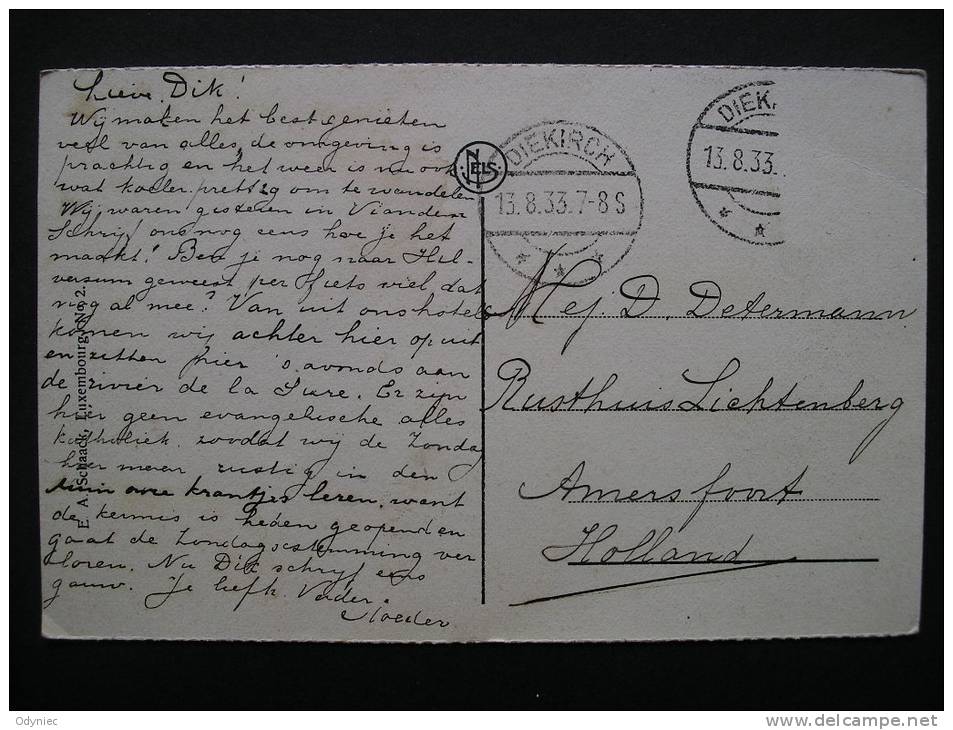 Lieve Dik!
Wij maken het best genieten
veel van alles, de omgeving is
prachtig en het weer is nu ook
wat koeler prettig om te wandelen
Wij waren gisteren in Vianden
Schrijf ons nog eens hoe je het
maakt! Ben je nog naar Hil-
versum geweest per fiets viel dat
nog al mee? Van uit ons hotel
komen wij achter hier op uit
en zitten hier 's avonds aan
de rivier de la Sure. Er zijn
hier geen evangelische alles
katholiek. zoodat wij de Zondag
hier meer rustig in den
tuin onze krantjes lezen, want
de kermis is heden geopend en
gaat de Zondagsstemming ver
loren. Nu Dik schrijf eens
gauw. Je liefh. Vader.
Moeder
E. A. Schaack, Luxembourg, No 2.
NELS
DIEKIRCH
13.8.33.7-8 S
DIEK
13.8.33.
Mej. D. Determann
Rusthuis Lichtenberg
Amersfoort
Holland
Odyniec
http://www.delcampe.net